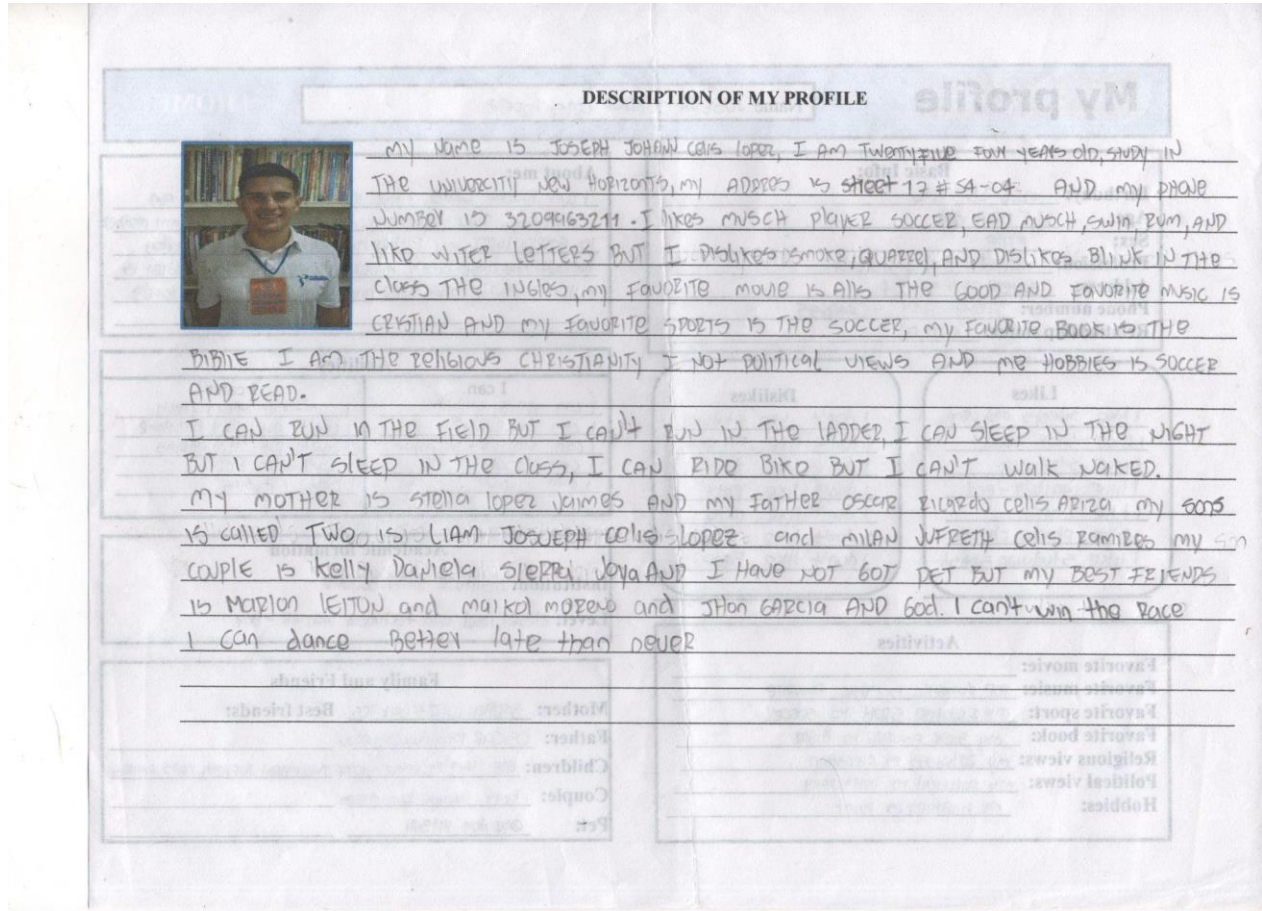 DESCRIPTION OF MY PROFILE
My profile
MY NAME IS JOSEPH JOHANN CELIS LOPEZ, I AM TWENTY FIVE FOUR YEARS OLD, STUDY IN
THE UNIVERCITY NEW HORIZONTS, MY ADDRES IS STREET 17 # 54-04 AND MY PHONE
NUMBER IS 3209963211. I LIKES MUSCH PLAYER SOCCER, EAD MUSCH, SWIN, RUM, AND
LIKE WITER LETTERS BUT I DISLIKES SMOKE, QUARREL, AND DISLIKES BLINK IN THE
CLASS THE INGLES, MY FAVORITE MOVIE IS ALLS THE GOOD AND FAVORITE MUSIC IS
CRISTIAN AND MY FAVORITE SPORTS IS THE SOCCER, MY FAVORITE BOOK IS THE
BIBLIE I AM THE RELIGIOUS CHRISTIANITY I NOT POLITICAL VIEWS AND ME HOBBIES IS SOCCER
AND READ.
I CAN RUN IN THE FIELD BUT I CAN'T RUN IN THE LADDER, I CAN SLEEP IN THE NIGHT
BUT I CAN'T SLEEP IN THE CLASS, I CAN RIDE BIKE BUT I CAN'T WALK NAKED.
MY MOTHER IS STELLA LOPEZ JAIMES AND MY FATHER OSCAR RICARDO CELIS ARIZA MY SONS
IS CALLED TWO IS LIAM JOSUEPH CELIS LOPEZ and MILAN JUFRETH CELIS RAMIRES MY
COUPLE IS Kelly Daniela SIERRA JOYA AND I HAVE NOT GOT PET BUT MY BEST FRIENDS
IS MARLON LEITON and maikol moreno and JHON GARCIA AND GOD. I can't win the Race
I can dance Better late than never
I can
Dislikes
Likes
Activities
Favorite movie:
Favorite music:
Favorite sport:
Favorite book:
Religious views:
Political views:
Hobbies:
Family and Friends
Mother: Best friends:
Father:
Children:
Couple:
Pet: